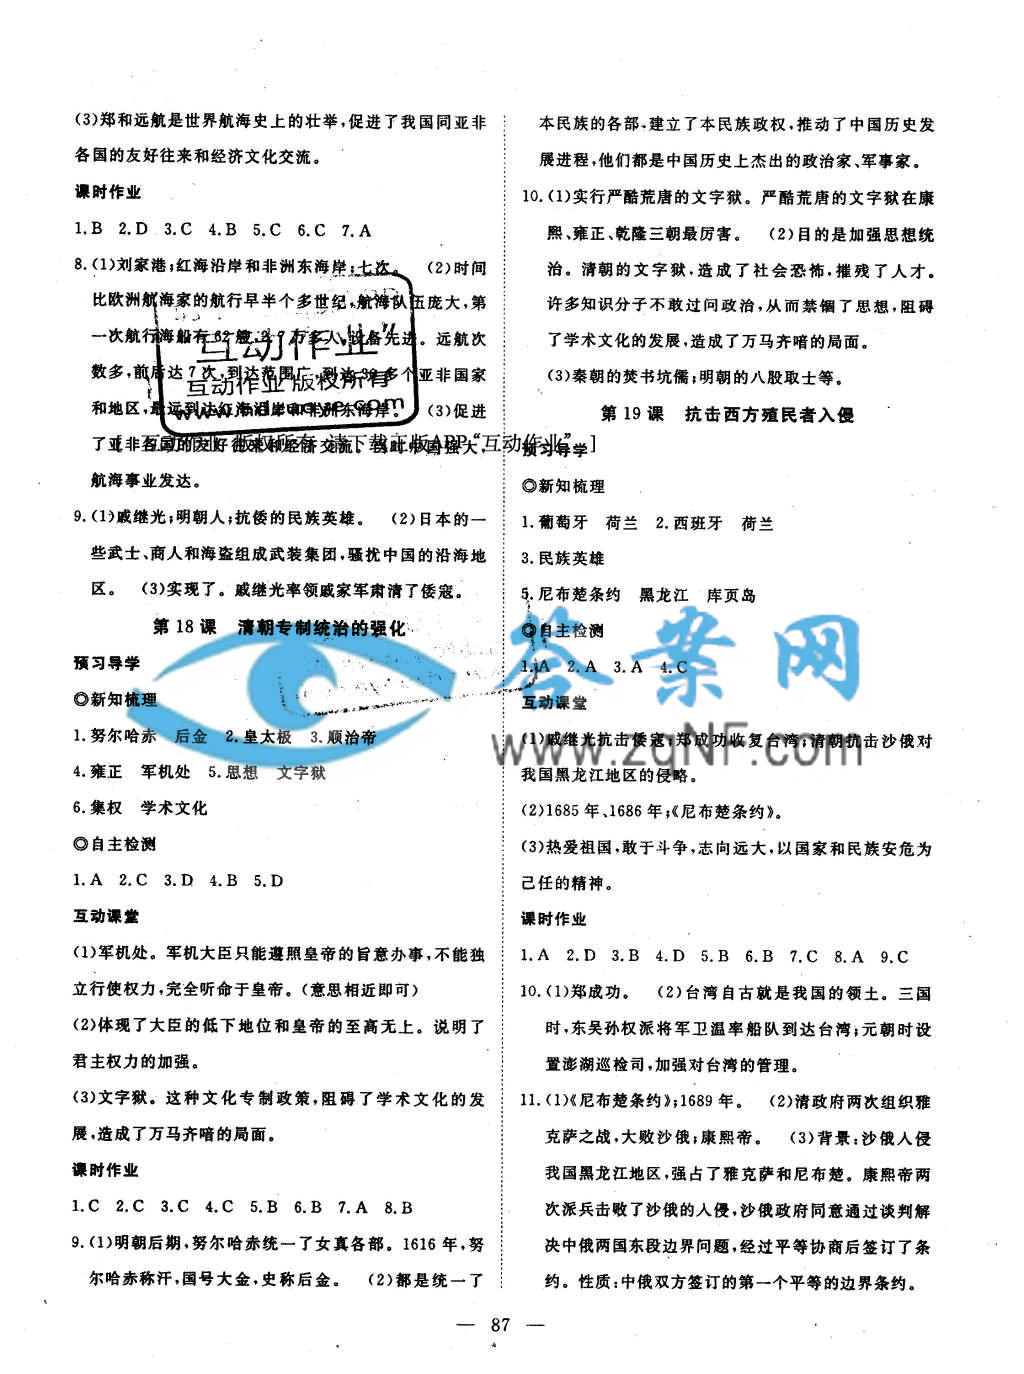 (3)郑和远航是世界航海史上的壮举,促进了我国同亚非
各国的友好往来和经济文化交流。
课时作业
1.B 2.D 3.C 4.B 5.C 6.C 7.A
8.(1)刘家港;红海沿岸和非洲东海岸;七次。 (2)时间
比欧洲航海家的航行早半个多世纪,航海队伍庞大,第
一次航行海船有62艘,2.7万多人,设备先进。远航次
数多,前后达7次,到达范围广,到达30多个亚非国家
和地区,最远到达红海沿岸和非洲东海岸。 (3)促进
了亚非各国的友好往来和经济交流。因此中国强大,
航海事业发达。
互动作业
互动作业 版权所有
[ 互动作业 版权所有 请下载正版APP“互动作业” ]
9.(1)戚继光;明朝人;抗倭的民族英雄。 (2)日本的一
些武士、商人和海盗组成武装集团,骚扰中国的沿海地
区。 (3)实现了。戚继光率领戚家军肃清了倭寇。
第18课 清朝专制统治的强化
预习导学
◎新知梳理
1.努尔哈赤 后金 2.皇太极 3.顺治帝
4.雍正 军机处 5.思想 文字狱
6.集权 学术文化
◎自主检测
1.A 2.C 3.D 4.B 5.D
互动课堂
(1)军机处。军机大臣只能遵照皇帝的旨意办事,不能独
立行使权力,完全听命于皇帝。(意思相近即可)
(2)体现了大臣的低下地位和皇帝的至高无上。说明了
君主权力的加强。
(3)文字狱。这种文化专制政策,阻碍了学术文化的发
展,造成了万马齐喑的局面。
课时作业
1.C 2.C 3.C 4.C 5.B 6.B 7.A 8.B
9.(1)明朝后期,努尔哈赤统一了女真各部。1616年,努
尔哈赤称汗,国号大金,史称后金。 (2)都是统一了
本民族的各部,建立了本民族政权,推动了中国历史发
展进程,他们都是中国历史上杰出的政治家、军事家。
10.(1)实行严酷荒唐的文字狱。严酷荒唐的文字狱在康
熙、雍正、乾隆三朝最厉害。 (2)目的是加强思想统
治。清朝的文字狱,造成了社会恐怖,摧残了人才。
许多知识分子不敢过问政治,从而禁锢了思想,阻碍
了学术文化的发展,造成了万马齐喑的局面。
(3)秦朝的焚书坑儒;明朝的八股取士等。
第19课 抗击西方殖民者入侵
预习导学
◎新知梳理
1.葡萄牙 荷兰 2.西班牙 荷兰
3.民族英雄
5.尼布楚条约 黑龙江 库页岛
◎自主检测
1.A 2.A 3.A 4.C
答案网
www.zqNF.com
互动课堂
(1)戚继光抗击倭寇;郑成功收复台湾;清朝抗击沙俄对
我国黑龙江地区的侵略。
(2)1685年、1686年;《尼布楚条约》。
(3)热爱祖国,敢于斗争,志向远大,以国家和民族安危为
己任的精神。
课时作业
1.A 2.D 3.B 4.D 5.B 6.B 7.C 8.A 9.C
10.(1)郑成功。 (2)台湾自古就是我国的领土。三国
时,东吴孙权派将军卫温率船队到达台湾;元朝时设
置澎湖巡检司,加强对台湾的管理。
11.(1)《尼布楚条约》;1689年。 (2)清政府两次组织雅
克萨之战,大败沙俄;康熙帝。 (3)背景:沙俄入侵
我国黑龙江地区,强占了雅克萨和尼布楚。康熙帝两
次派兵击败了沙俄的入侵,沙俄政府同意通过谈判解
决中俄两国东段边界问题,经过平等协商后签订了条
约。性质:中俄双方签订的第一个平等的边界条约。
— 87 —